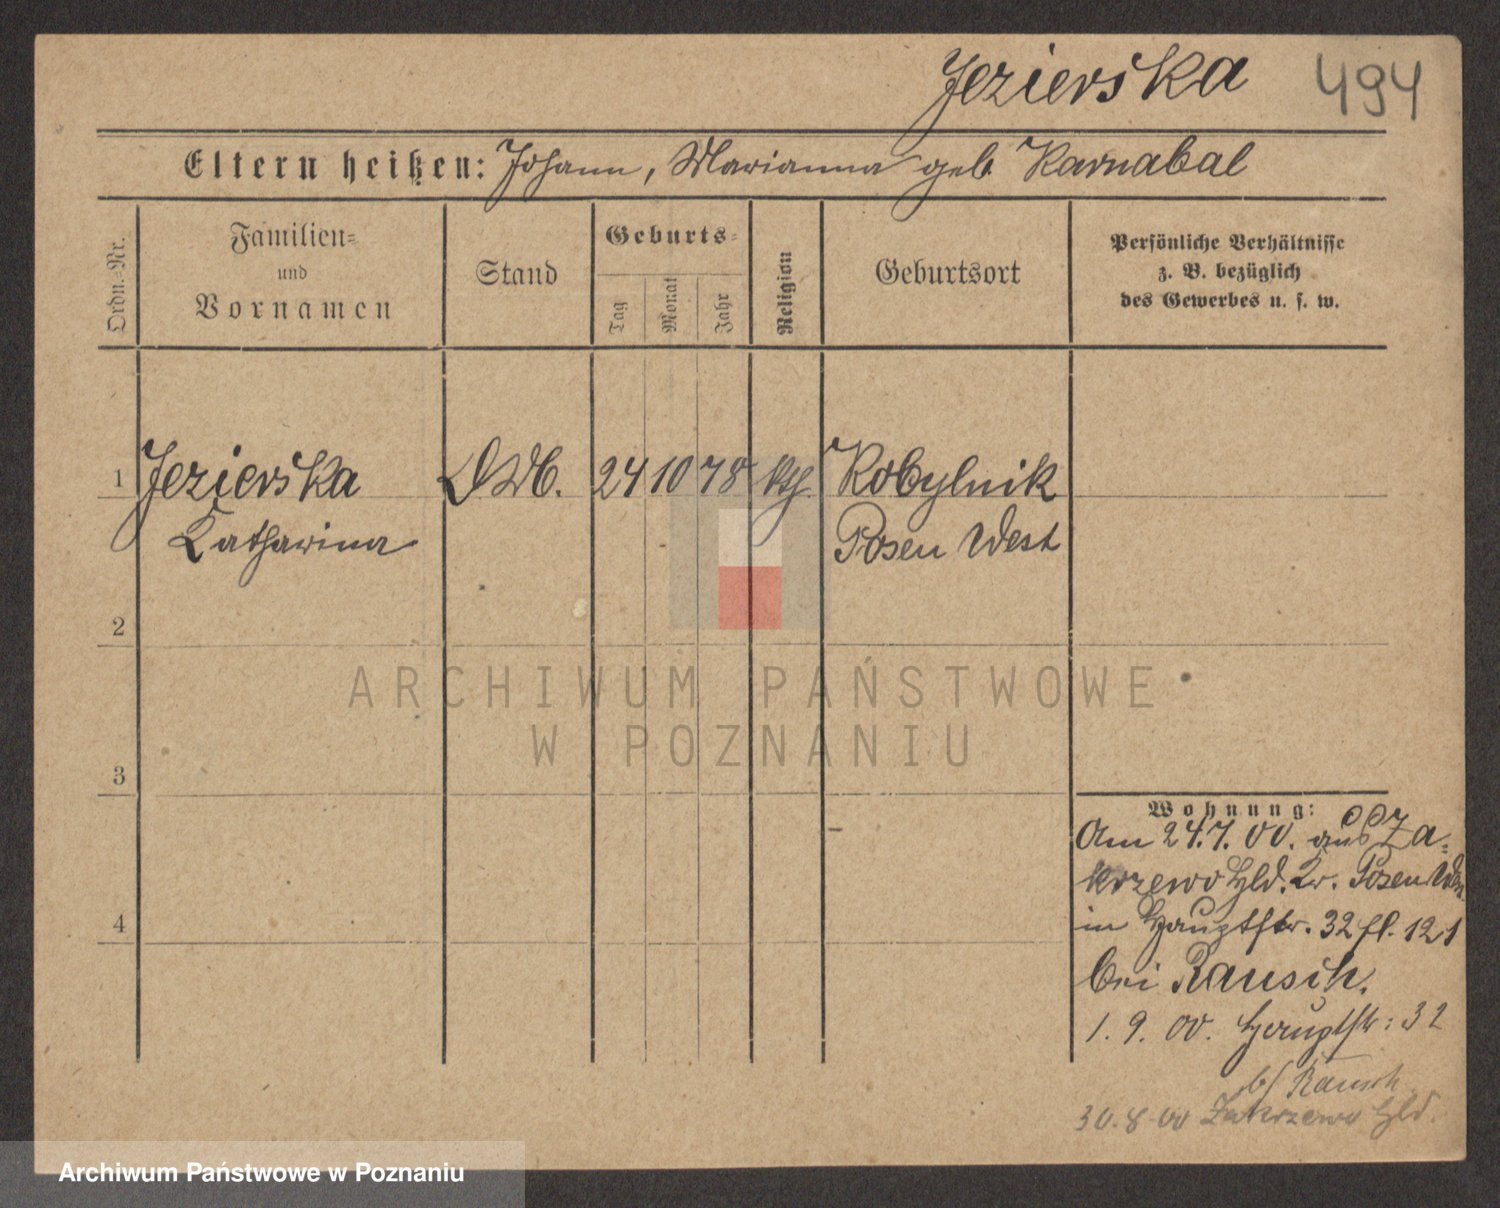 Jezierska 494
Eltern heißen: Johann, Marianna geb. Karnabal
Ordn.=Nr.
Familien=
und
Vornamen
Stand
Geburts=
Tag
Monat
Jahr
Religion
Geburtsort
Persönliche Verhältnisse
z. B. bezüglich
des Gewerbes u. s. w.
1 Jezierska 24 10 78 kth. Kobylnik
Katharina Posen West
2
3
4
ARCHIWUM PAŃSTWOWE
W POZNANIU
Wohnung:
Am 24.7.00. aus Za=
krzewo Hld. Kr. Posen West
in Hauptstr. 32 121
bei Rausch.
1. 9. 00. Hauptstr: 32
b/ Rausch
30.8.00 Zakrzewo Hld.
Archiwum Państwowe w Poznaniu